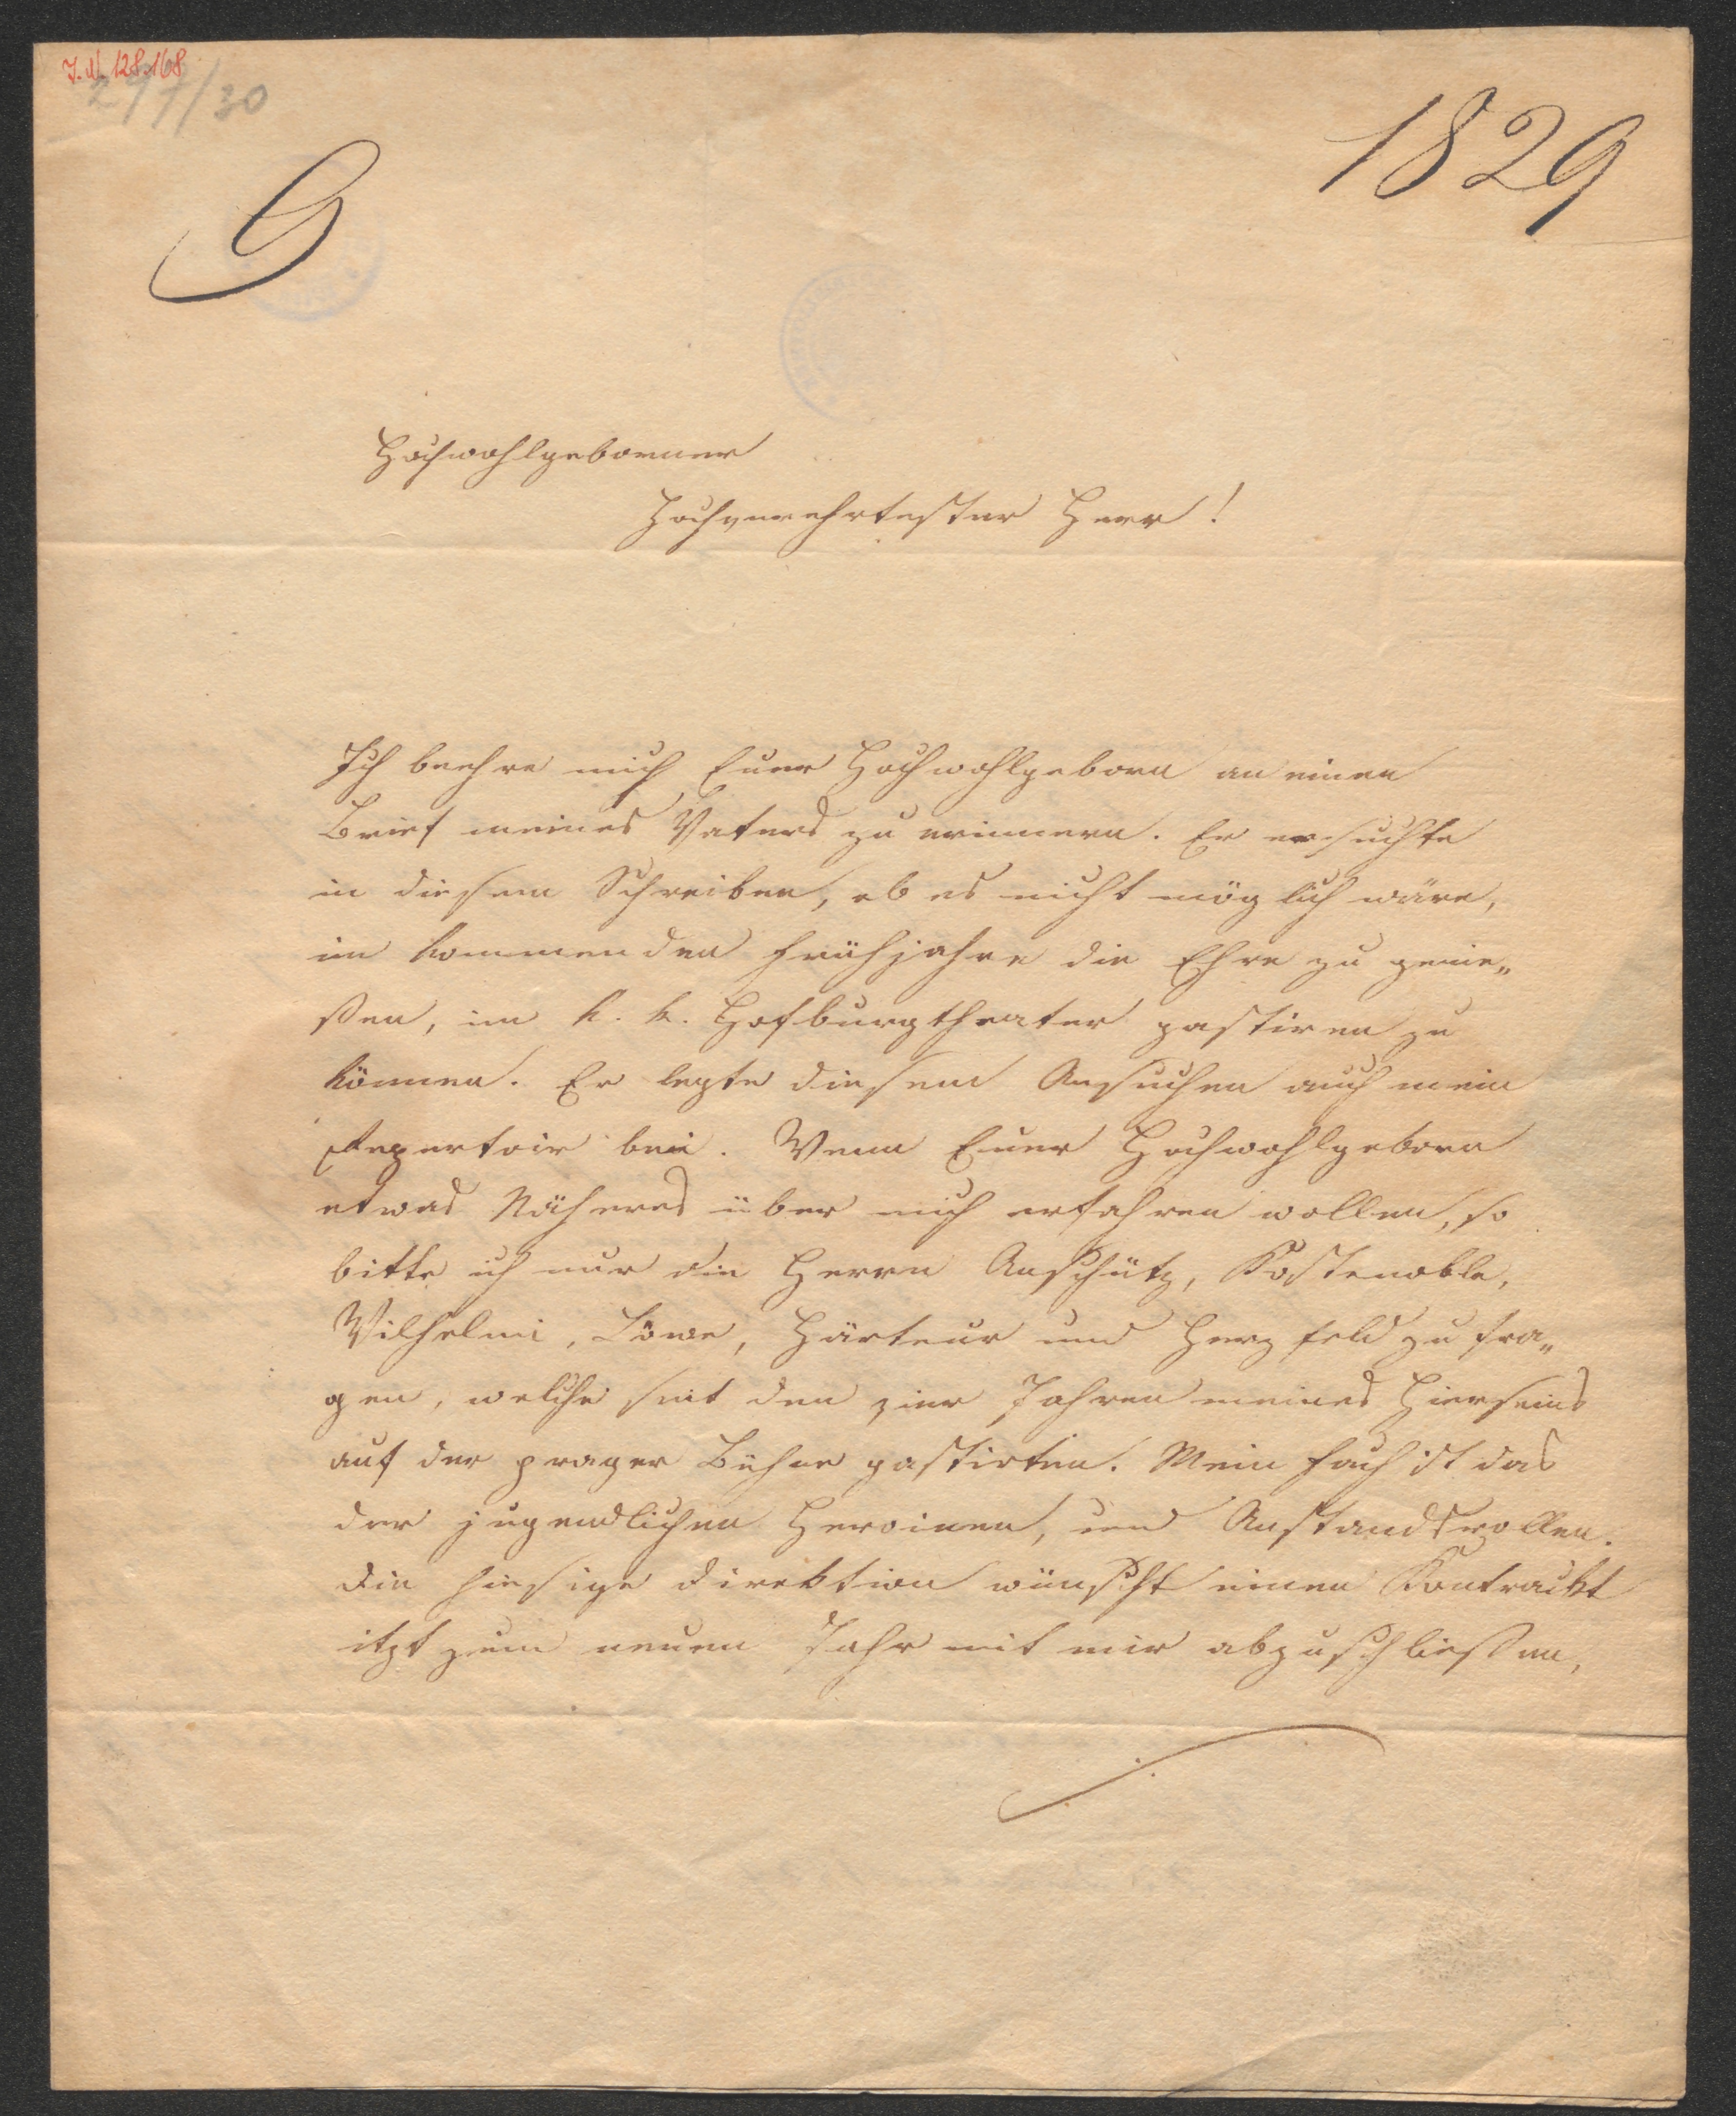 I. N. 128.168
297/30
1829
G
Hochwohlgeborner
Hochverehrtester Herr!
Ich beehre mich Euer Hochwohlgeborn an einen
Brief meines Vaters zu erinnern. Er ersuchte
in diesem Schreiben, ob es nicht möglich wäre,
im kommenden Frühjahre die Ehre zu genie„
ßen, im k. k. Hofburgtheater gastiren zu
können. Er legte diesem Ansuchen auch mein
Repertoir bei. Wenn Euer Hochwohlgeborn
etwas Näheres über mich erfahren wollen, so
bitte ich nur die Herrn Anschütz, Kostenoble,
Wilhelmi, Löwe, Härteur und Herzfeld zu fra„
gen, welche seit den vier Jahren meines Hierseins
auf der prager Bühne gastirten. Mein Fach ist das
der jugendlichen Heroinen, und Anstandsrollen.
Die hiesige Direktion wünscht einen Kontrackt
itzt zum neuen Jahr mit mir abzuschließen,